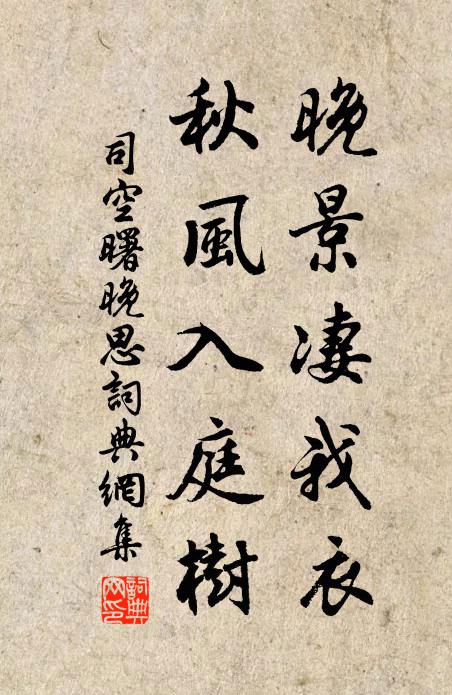 晚景凄我衣
秋風入庭樹
司空曙晚思詞典網集
詞典网印